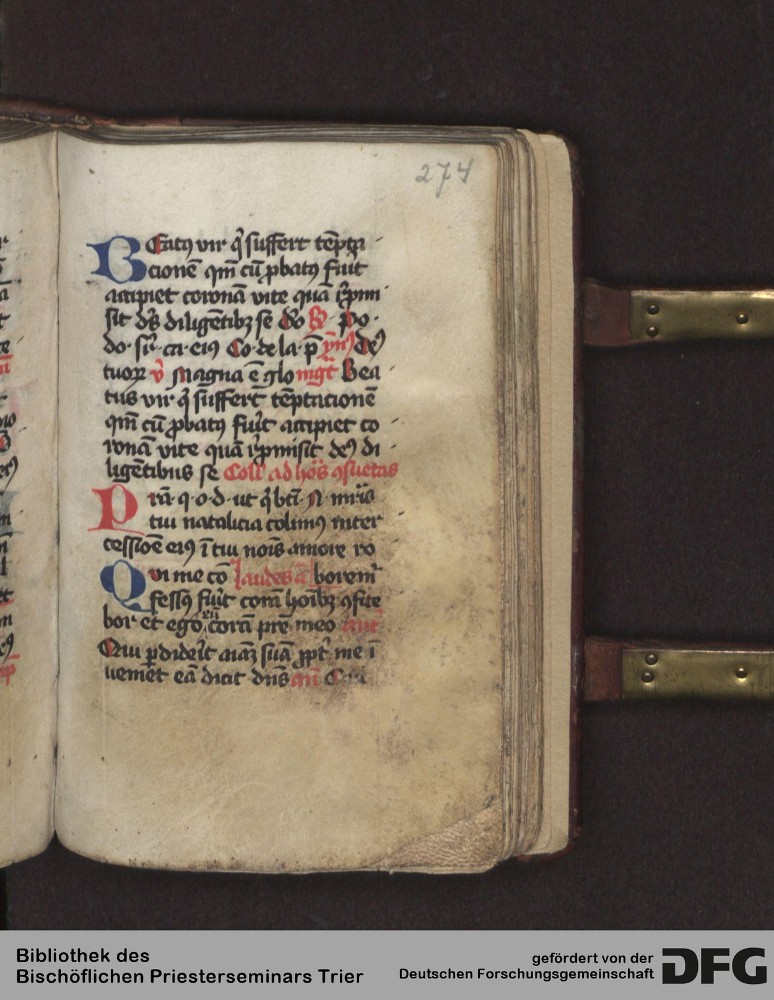 274
Beatꝯ vir q̇ suffert tēpta
cionē qm̄ cū ꝓbatꝯ fuit
accipiet coronā vite quā rep̄mi
sit dꝰs diligētibꝫ se do po
do· su· ca· eiꝯ Co· de la· p̄ ymꝯ Deꝯ
tuoꝝ v̄ Magna ē glo mgt̄ Bea
tus vir q̇ suffert tēptacionē
qm̄ cū ꝓbatꝯ fuit accipiet co
ronā vite quā rep̄misit deꝯ di
ligētibus se Coll ad hōs ꝯsuetas
Prā· q· o· d· ut q̇ bti· N· mr̄is
tui natalicia colimꝯ inter
cessiōe eiꝯ ī tui noīs amore ro
Qui me cō laudes a borem̄
fessꝯ fuit corā hoībꝫ ꝯfite
bor et ego eū corā pr̄e meo añt
Qui ꝑdiderit aiaꝫ suā ꝓpt̄ me ī
veniet eā dicit dn̄s añ
Bibliothek des
Bischöflichen Priesterseminars Trier
gefördert von der
Deutschen Forschungsgemeinschaft
DFG